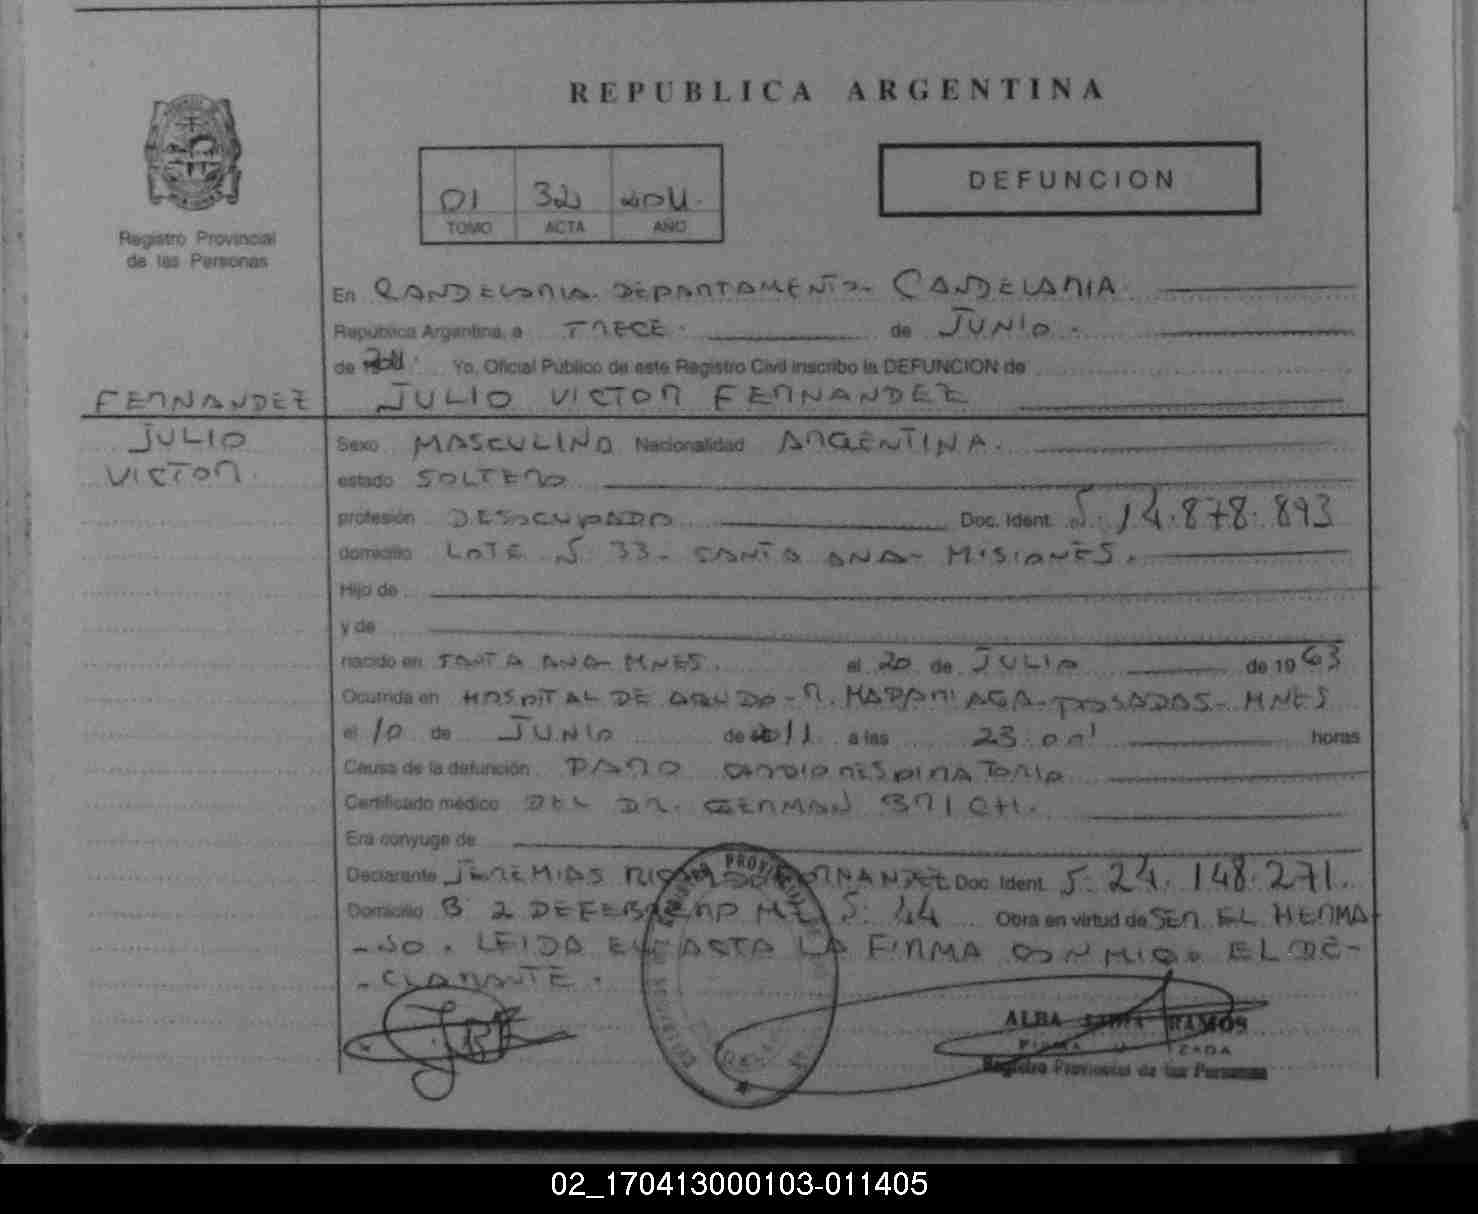 REPUBLICA ARGENTINA
DEFUNCION
01 32 2011.
TOMO ACTA AÑO
Registro Provincial
de las Personas
En CANDELARIA. DEPARTAMENTO- CANDELARIA
República Argentina, a TRECE. de JUNIO.
de 2011. Yo, Oficial Público de este Registro Civil inscribo la DEFUNCION de
FERNANDEZ JULIO VICTOR FERNANDEZ
JULIO Sexo MASCULINO Nacionalidad ARGENTINA.
VICTOR. estado SOLTERO
profesión DESOCUPADO Doc. Ident. 14.878.893
domicilio LOTE 33- SANTA ANA- MISIONES.
Hijo de
y de
nacido en SANTA ANA- MNES. el 20 de JULIO de 1963
Ocurrida en HOSPITAL DE AGUDO-R. MADARIAGA-POSADAS- MNES
el 10 de JUNIO de 2011 a las 23.00 horas
Causa de la defunción PARO CARDIO RESPIRATORIO
Certificado médico DEL DR. GERMAN
Era conyuge de
Declarante JEREMIAS RICARDO FERNANDEZ Doc. Ident. 24.148.271.
Domicilio B 2 DE FEBRERO MZ 44 Obra en virtud de SER EL HERMA-
-NO. LEIDA EL ACTA LA FIRMA CONMIGO EL DE-
-CLARANTE.
ALBA RAMOS
Registro Provincial de las Personas
02_170413000103-011405